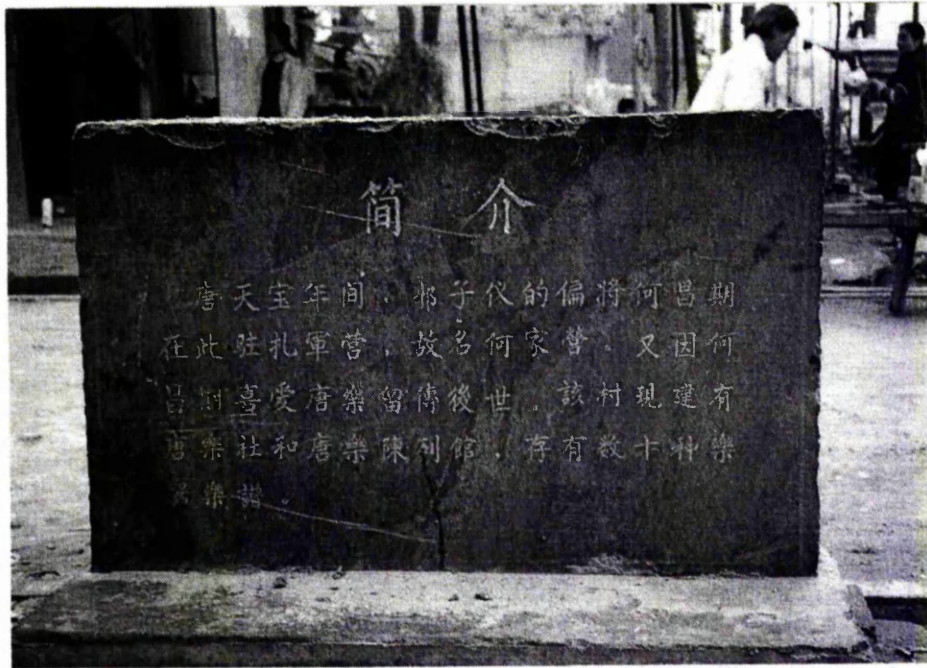 简介
唐天宝年间,郭子仪的偏将何昌期
在此驻扎軍营,故名何家營。又因何
昌期喜爱唐樂留傳後世。該村現建有
唐樂社和唐樂陳列館,存有数十种樂
器樂譜。